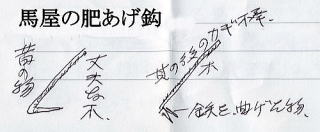 馬屋の肥あげ鈎
昔の物
丈夫な木、
其の後のカギ棒、
木
鉄を曲げた物、